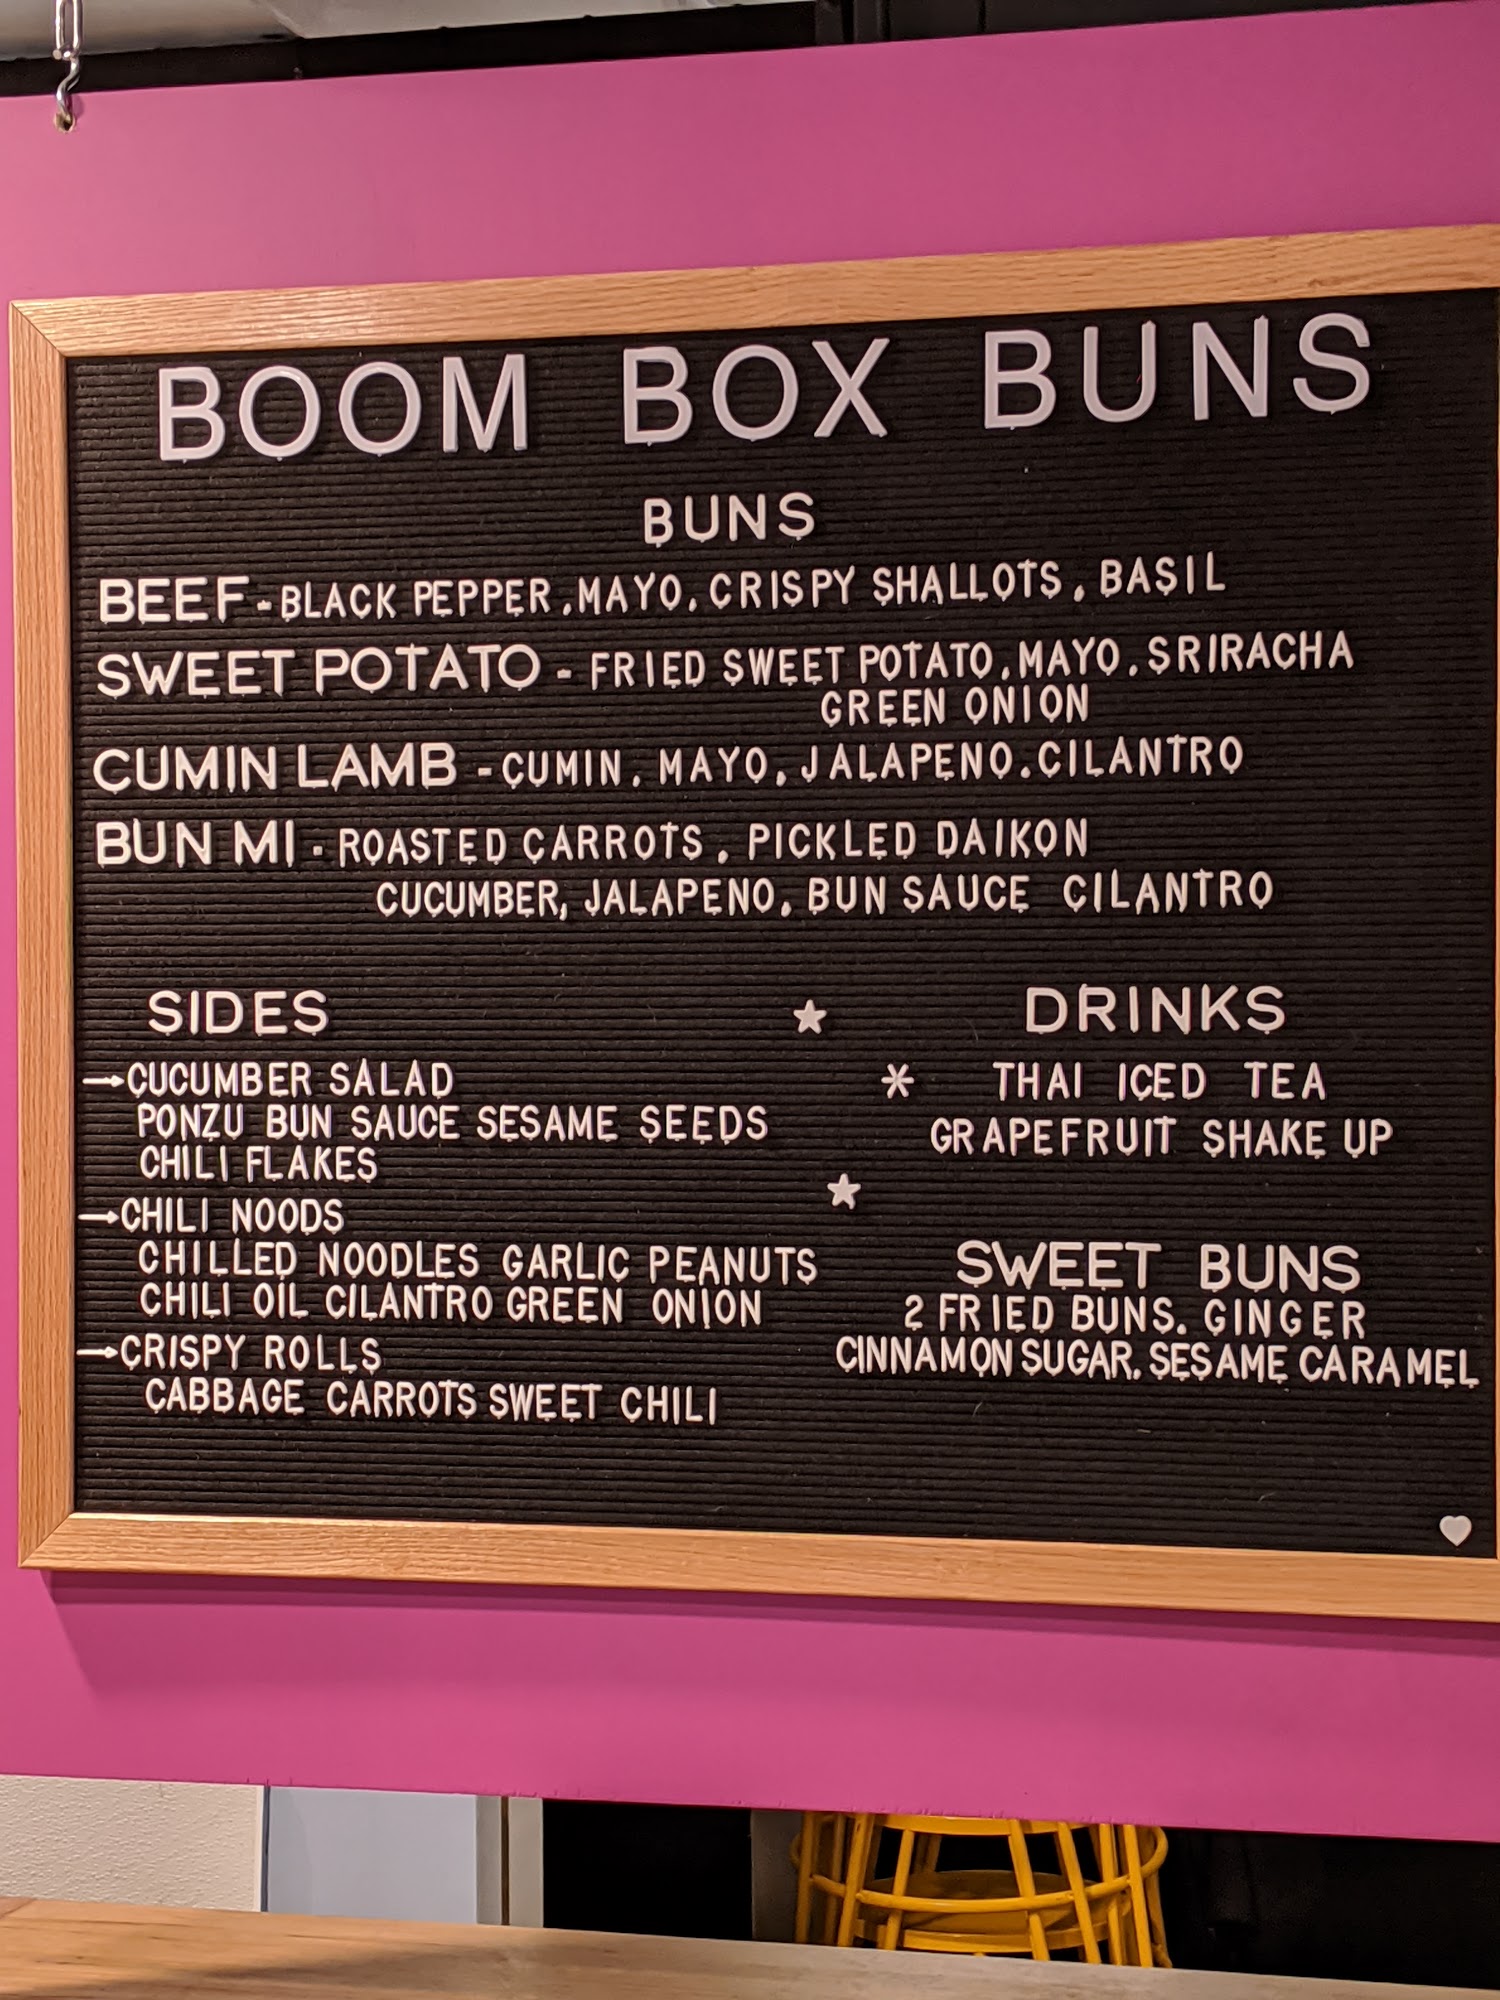 BOOM BOX BUNS
BUNS
BEEF-BLACK PEPPER,MAYO,CRISPY SHALLOTS, BASIL
SWEET POTATO - FRIED SWEET POTATO,MAYO,SRIRACHA
GREEN ONION
CUMIN LAMB -CUMIN, MAYO, JALAPENO.CILANTRO
BUN MI - ROASTED CARROTS, PICKLED DAIKON
CUCUMBER, JALAPENO, BUN SAUCE CILANTRO
SIDES
→CUCUMBER SALAD
PONZU BUN SAUCE SESAME SEEDS
CHILI FLAKES
→CHILI NOODS
CHILLED NOODLES GARLIC PEANUTS
CHILI OIL CILANTRO GREEN ONION
→CRISPY ROLLS
CABBAGE CARROTS SWEET CHILI
DRINKS
* THAI ICED TEA
GRAPEFRUIT SHAKE UP
SWEET BUNS
2 FRIED BUNS. GINGER
CINNAMON SUGAR. SESAME CARAMEL